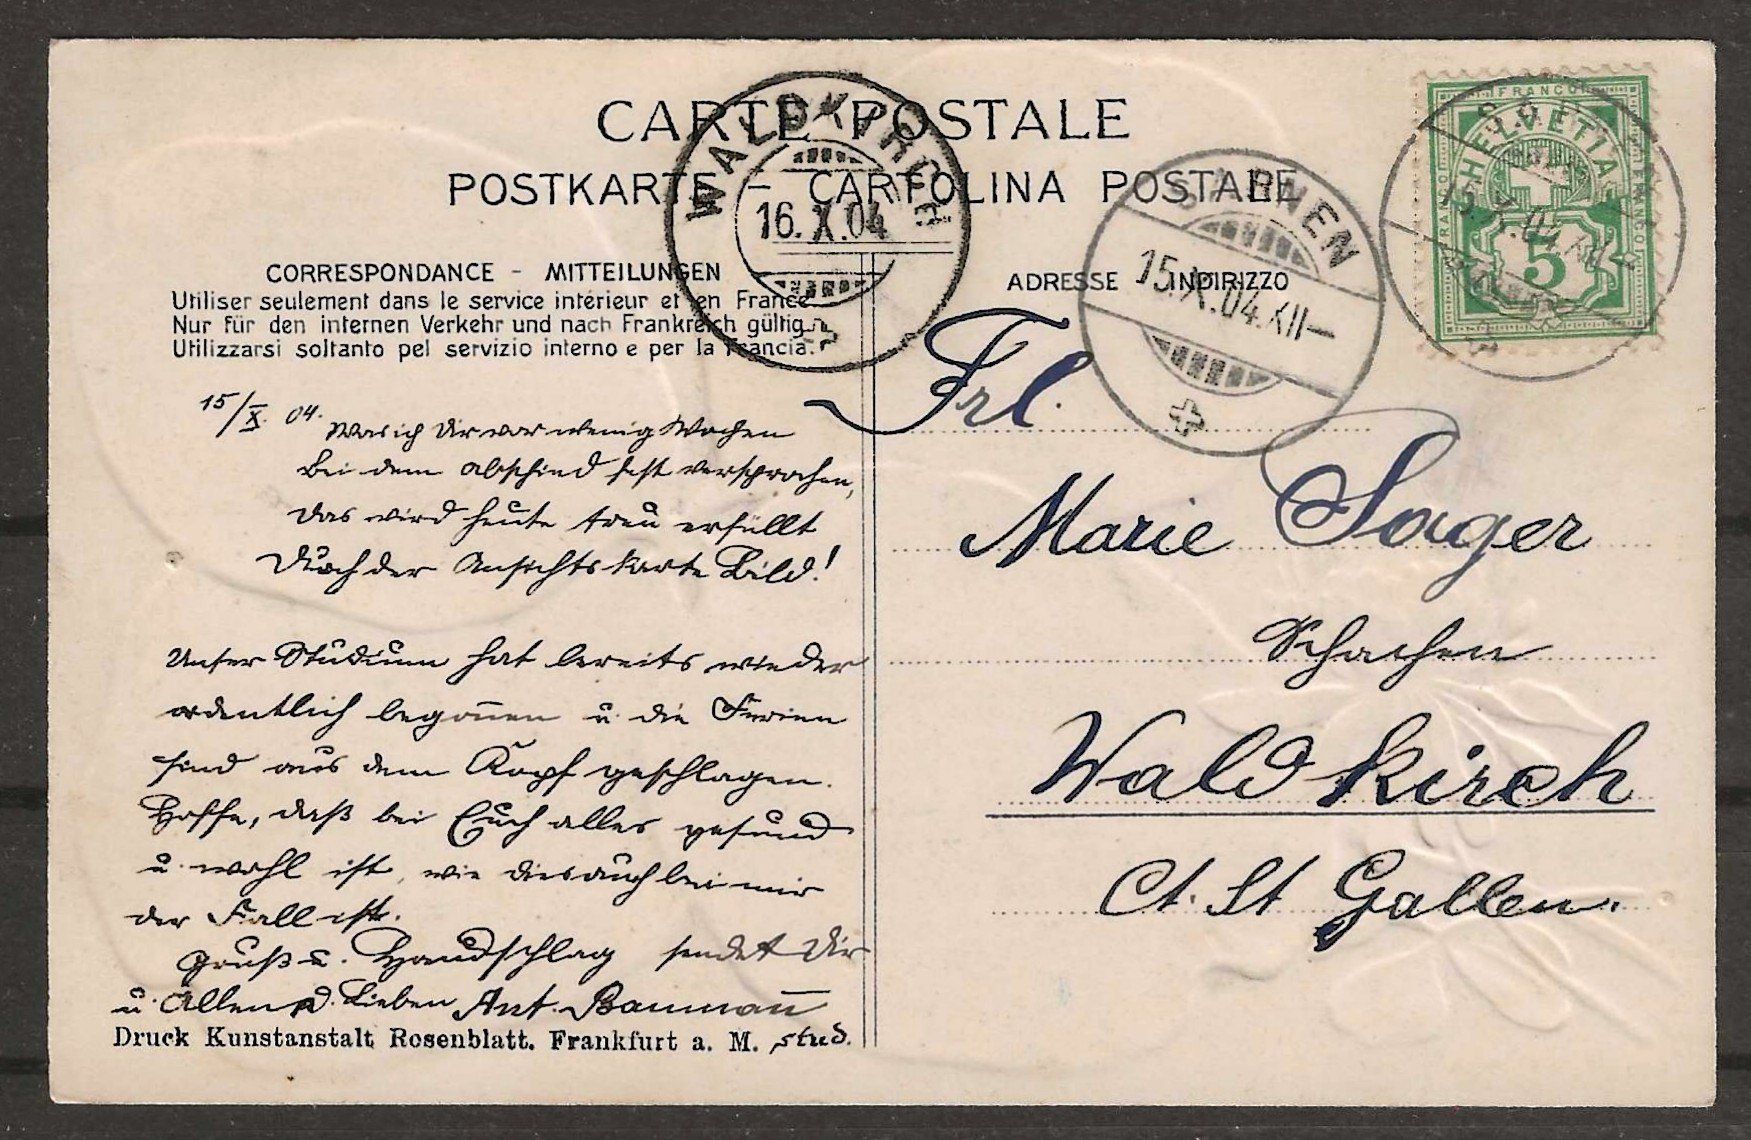 CARTE POSTALE
POSTKARTE - CARTOLINA POSTALE
WALDKIRCH
16.X.04
SARNEN
15.X.04.XII-
FRANCO
HELVETIA
FRANCO
FRANCO
5
15.X.04.XII-
CORRESPONDANCE - MITTEILUNGEN
Utiliser seulement dans le service intérieur et en France
Nur für den internen Verkehr und nach Frankreich gültig.
Utilizzarsi soltanto pel servizio interno e per la Francia.
15/X. 04.
Was ich Dir vor wenig Wochen
Bei dem Abschied fest versprochen,
Das wird heute treu erfüllt
Durch der Ansichtskarte Bild!
Unser Studium hat bereits wieder
ordentlich begonnen u. die Ferien
sind aus dem Kopf geschlagen.
Hoffe, daß bei Euch alles gesund
u. wohl ist, wie dies auch bei mir
der Fall ist.
Gruß u. Handschlag sendet Dir
u. Allen d. Lieben Ant. Baumann
stud.
Druck Kunstanstalt Rosenblatt. Frankfurt a. M.
ADRESSE - INDIRIZZO
Frl.
Marie Sager
Schachen
Waldkirch
Ct. St Gallen.